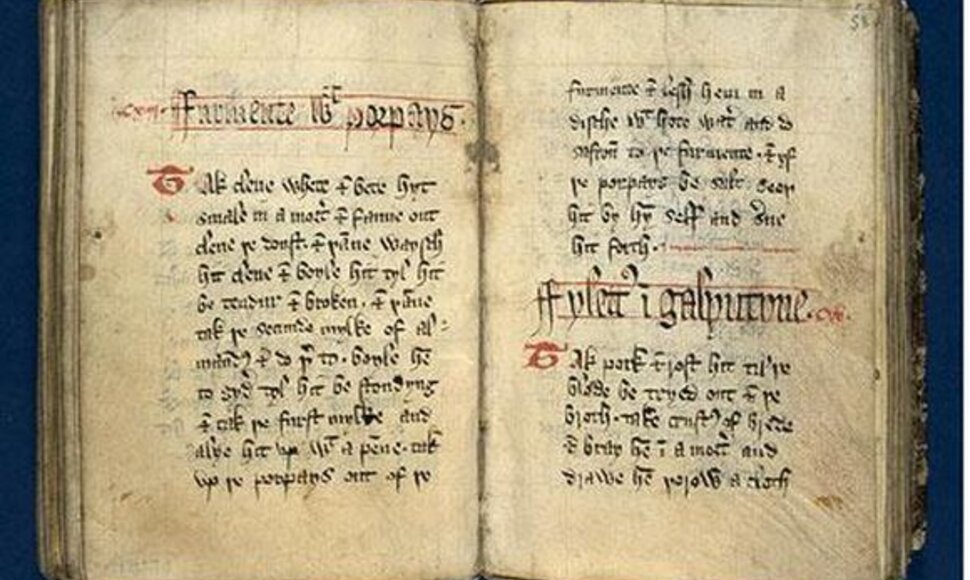 Furmente wt porpays.
Tak clene whete & bete hyt
smale in a mort & fanne out
clene þe doust. & þane waysch
hit clene & boyle hit tyl hit
be tendur & broken. & þane
tak þe secunde mylke of al-
mand & do þr to. boyle hē
to gyd tyl hit be stondyng
& tak þe furst mylke and
alye hit up wt a pēne. tak
up þe porpays out of þe
58
furmente & lesh hem in a
dische wt hote watr and do
safron to þe furmente. & yf
þe porpays be salt. seeþ
hit by hy self and sue
hit forth.
Fylett ī galyntyne.
Tak pork & rost hit til þe
blode be tryed out & þe
broth. take crust of brede
& bray hē ī a mort and
drawe hē þorow a cloth